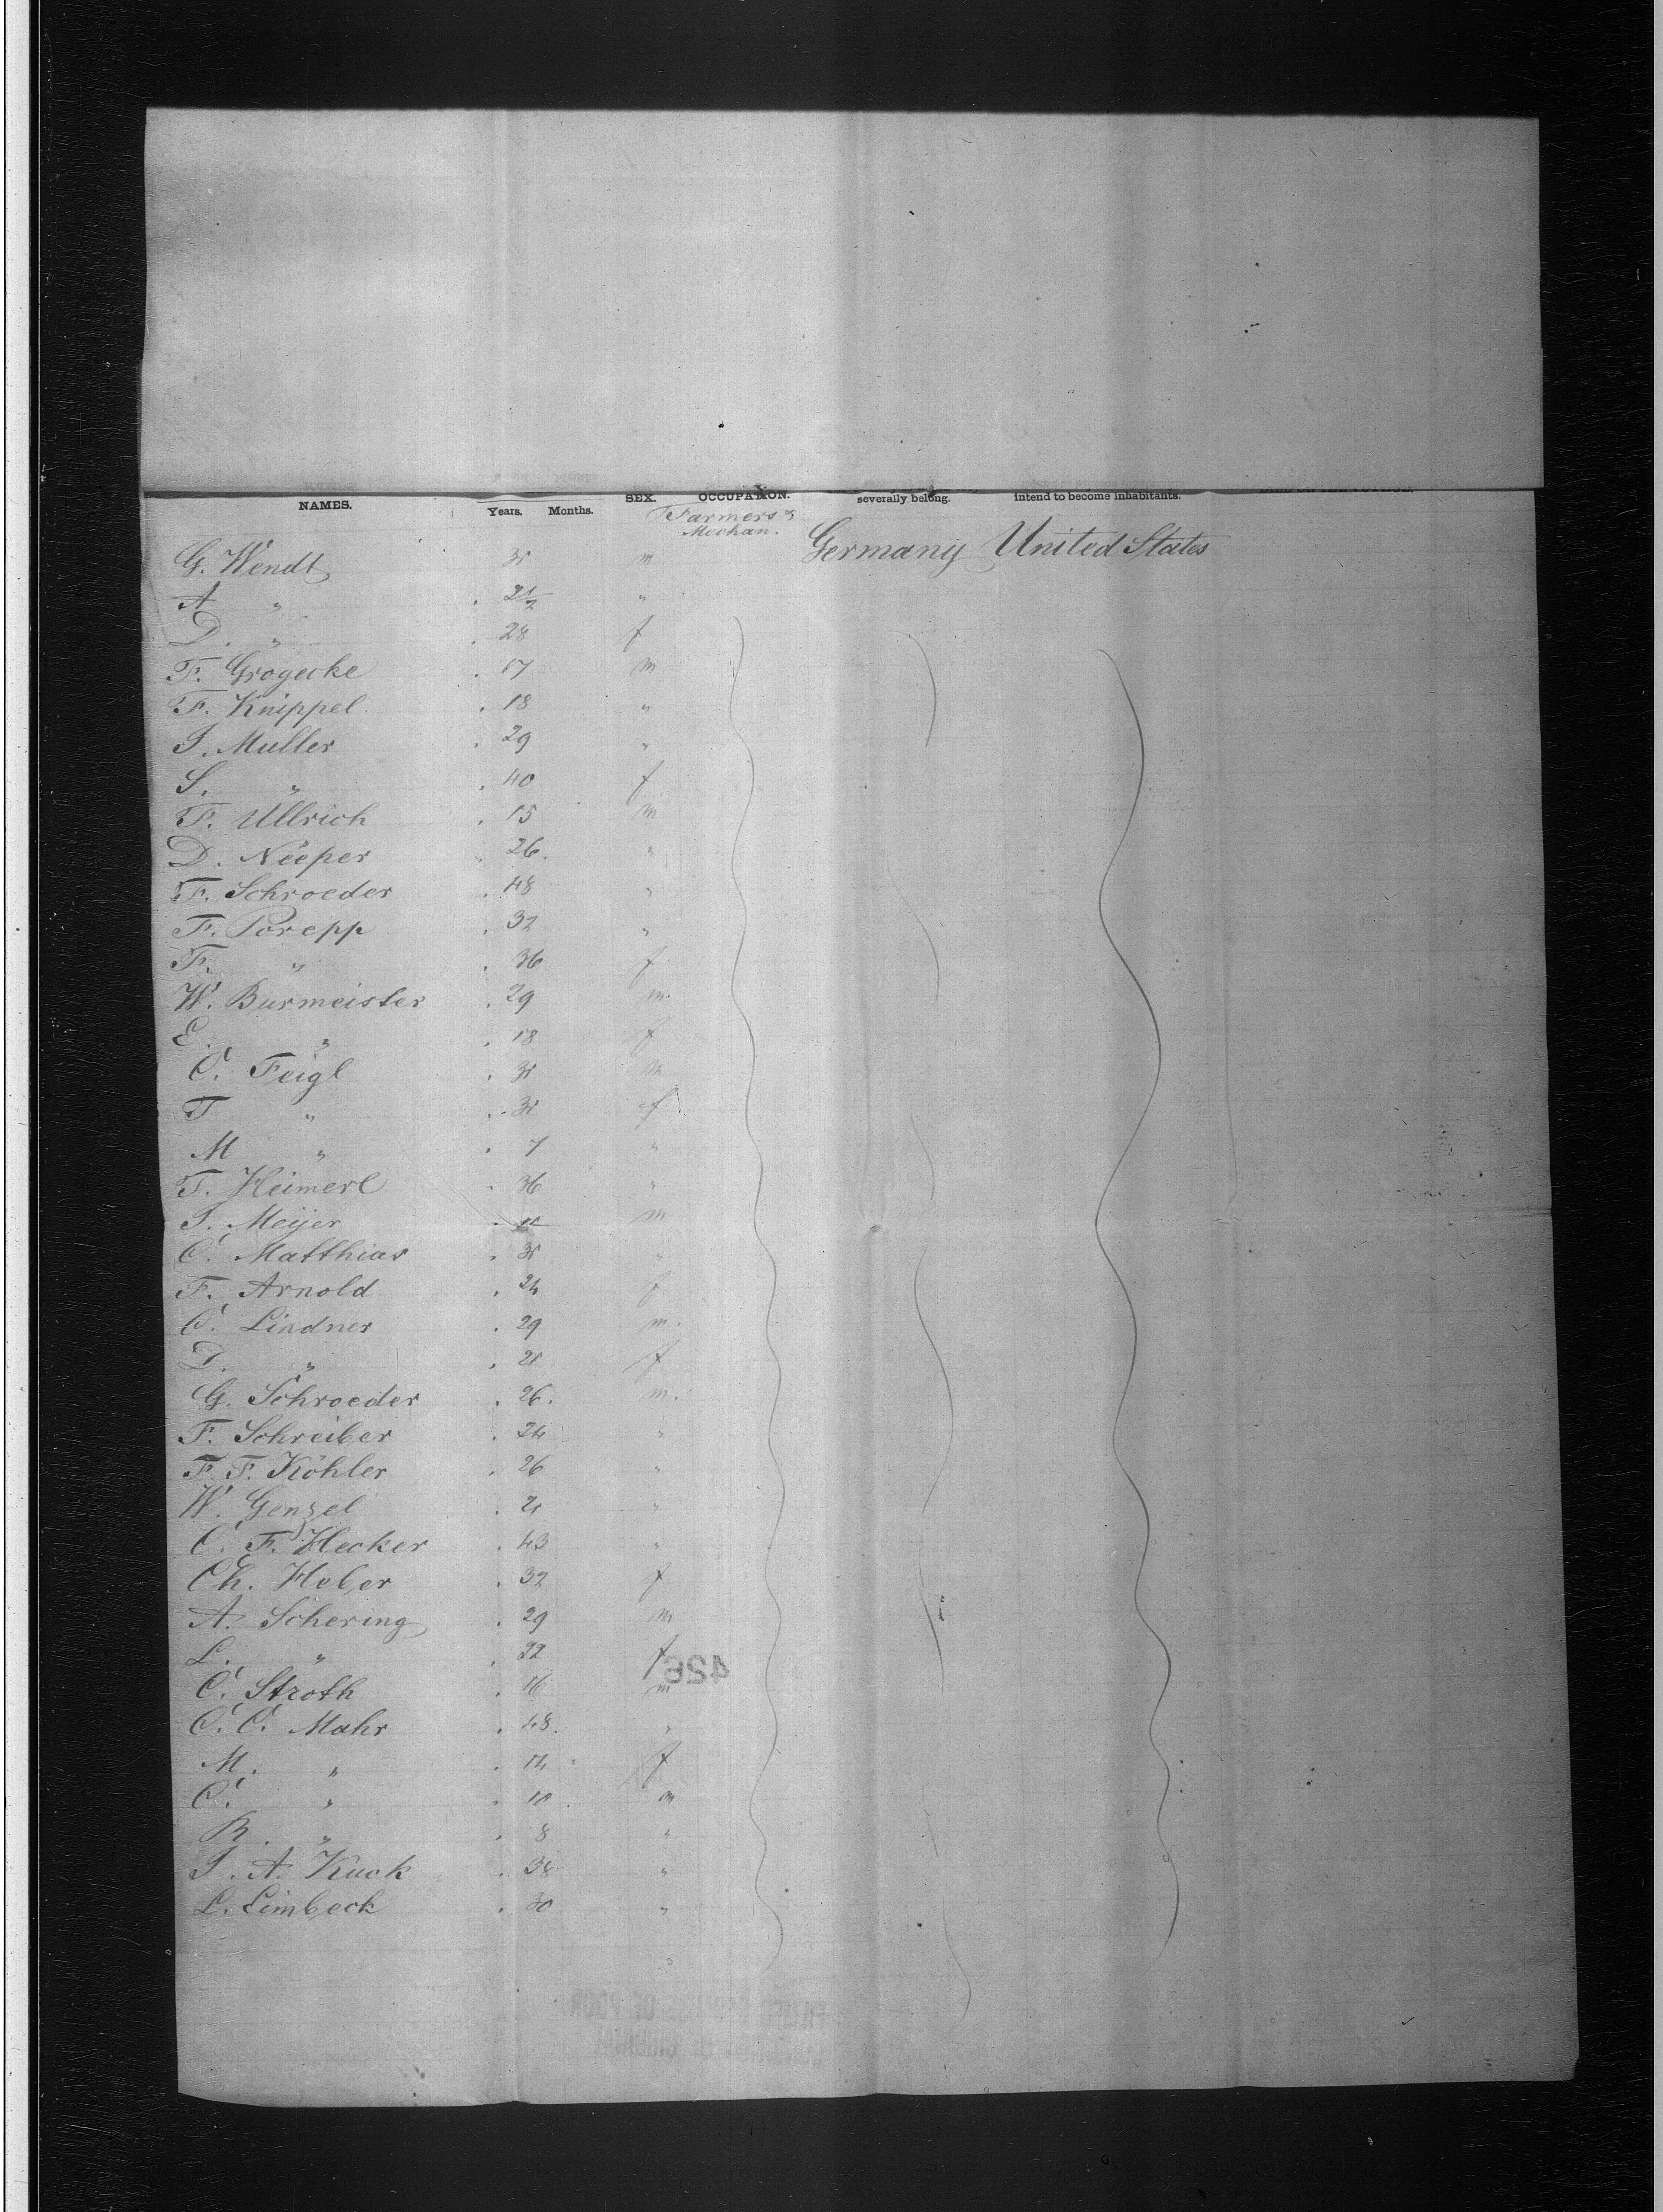 NAMES. Years. Months. SEX. OCCUPATION. severally belong. intend to become inhabitants.
Farmers &
Mechan.
G. Wendt 31 m Germany United States
A " 2 1/2 "
D. " 28 f
F. Grogecke 17 m
F. Knippel 18 "
J. Muller 29 "
S. " 40 f
F. Ullrich 15 m
D. Nieper 26. "
F. Schroeder 48 "
F. Porepp 32 "
F. " 36 f
W. Burmeister 29 m.
E. " 18 f
C. Feigl 31 m
T " 31 f
M " 7 "
T. Heimerl 36 "
J. Meijer m
C. Matthias 31 "
F. Arnold 24 f
C. Lindner 29 m.
D. " 21 f
G. Schroeder 26. m.
F. Schreiber 24 "
F. F. Köhler 26 "
W. Genzel 21 "
C. F. Hecker 43 "
Ch. Hober 32 f
A. Schering 29 m
L. " 22 f
426
C. Stroth 16 m
C. C. Mahr 48. "
M. " 14 f
C. " 10 m
R. " 8 "
J. A. Kuck 38 "
L. Limbeck 30 "